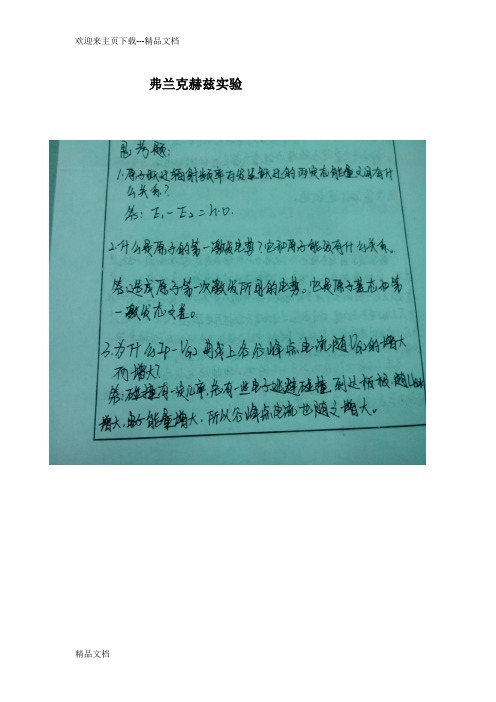 欢迎来主页下载---精品文档
弗兰克赫兹实验
思考题:
1.原子跃迁辐射频率与发生跃迁的两定态能量之间有什
么关系?
答: E₁-E₂=h·υ.
2.什么是原子的第一激发电势?它和原子能级有什么关系。
答:造成原子第一次激发所用的电势。它是原子基态和第
一激发态之差。
3.为什么Ip-VG2曲线上各谷峰点电流随VG2的增大
而增大?
答:碰撞有一定几率,总有一些电子逃避碰撞,到达板极,随
增大,电子能量增大,所以谷峰点电流也随之增大。
精品文档